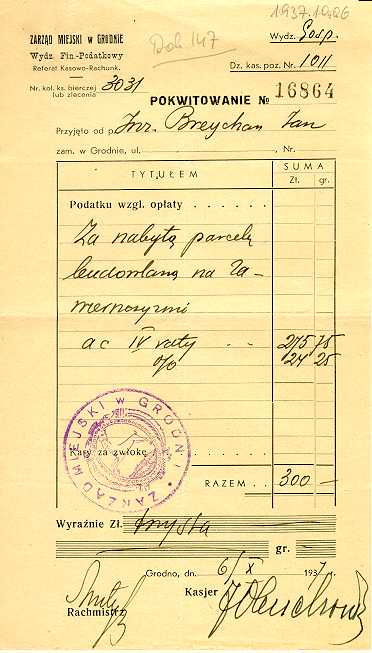 1937.10.06
ZARZĄD MIEJSKI W GRODNIE
Wydz. Fin-Podatkowy
Referat Kasowo-Rachunk.
Dok 147
Wydz. Gosp.
Dz. kas. poz. Nr. 1011
Nr. kol. ks. bierczej 3031
lub zlecenia
POKWITOWANIE № 16864
Przyjęto od p. Inż. Breychan Jan
zam. w Grodnie, ul. Nr.
TYTUŁEM SUMA
Zł. gr.
Podatku wzgl. opłaty
Za nabytą parcelę
budowlaną na Za-
a c IV raty 275 75
% 24 25
ZARZĄD MIEJSKI W GRODNIE
Kary za zwłokę
RAZEM 300 —
Wyraźnie Zł. trzysta
gr. —
Grodno, dn. 6/X 1937 r.
Rachmistrz
Kasjer